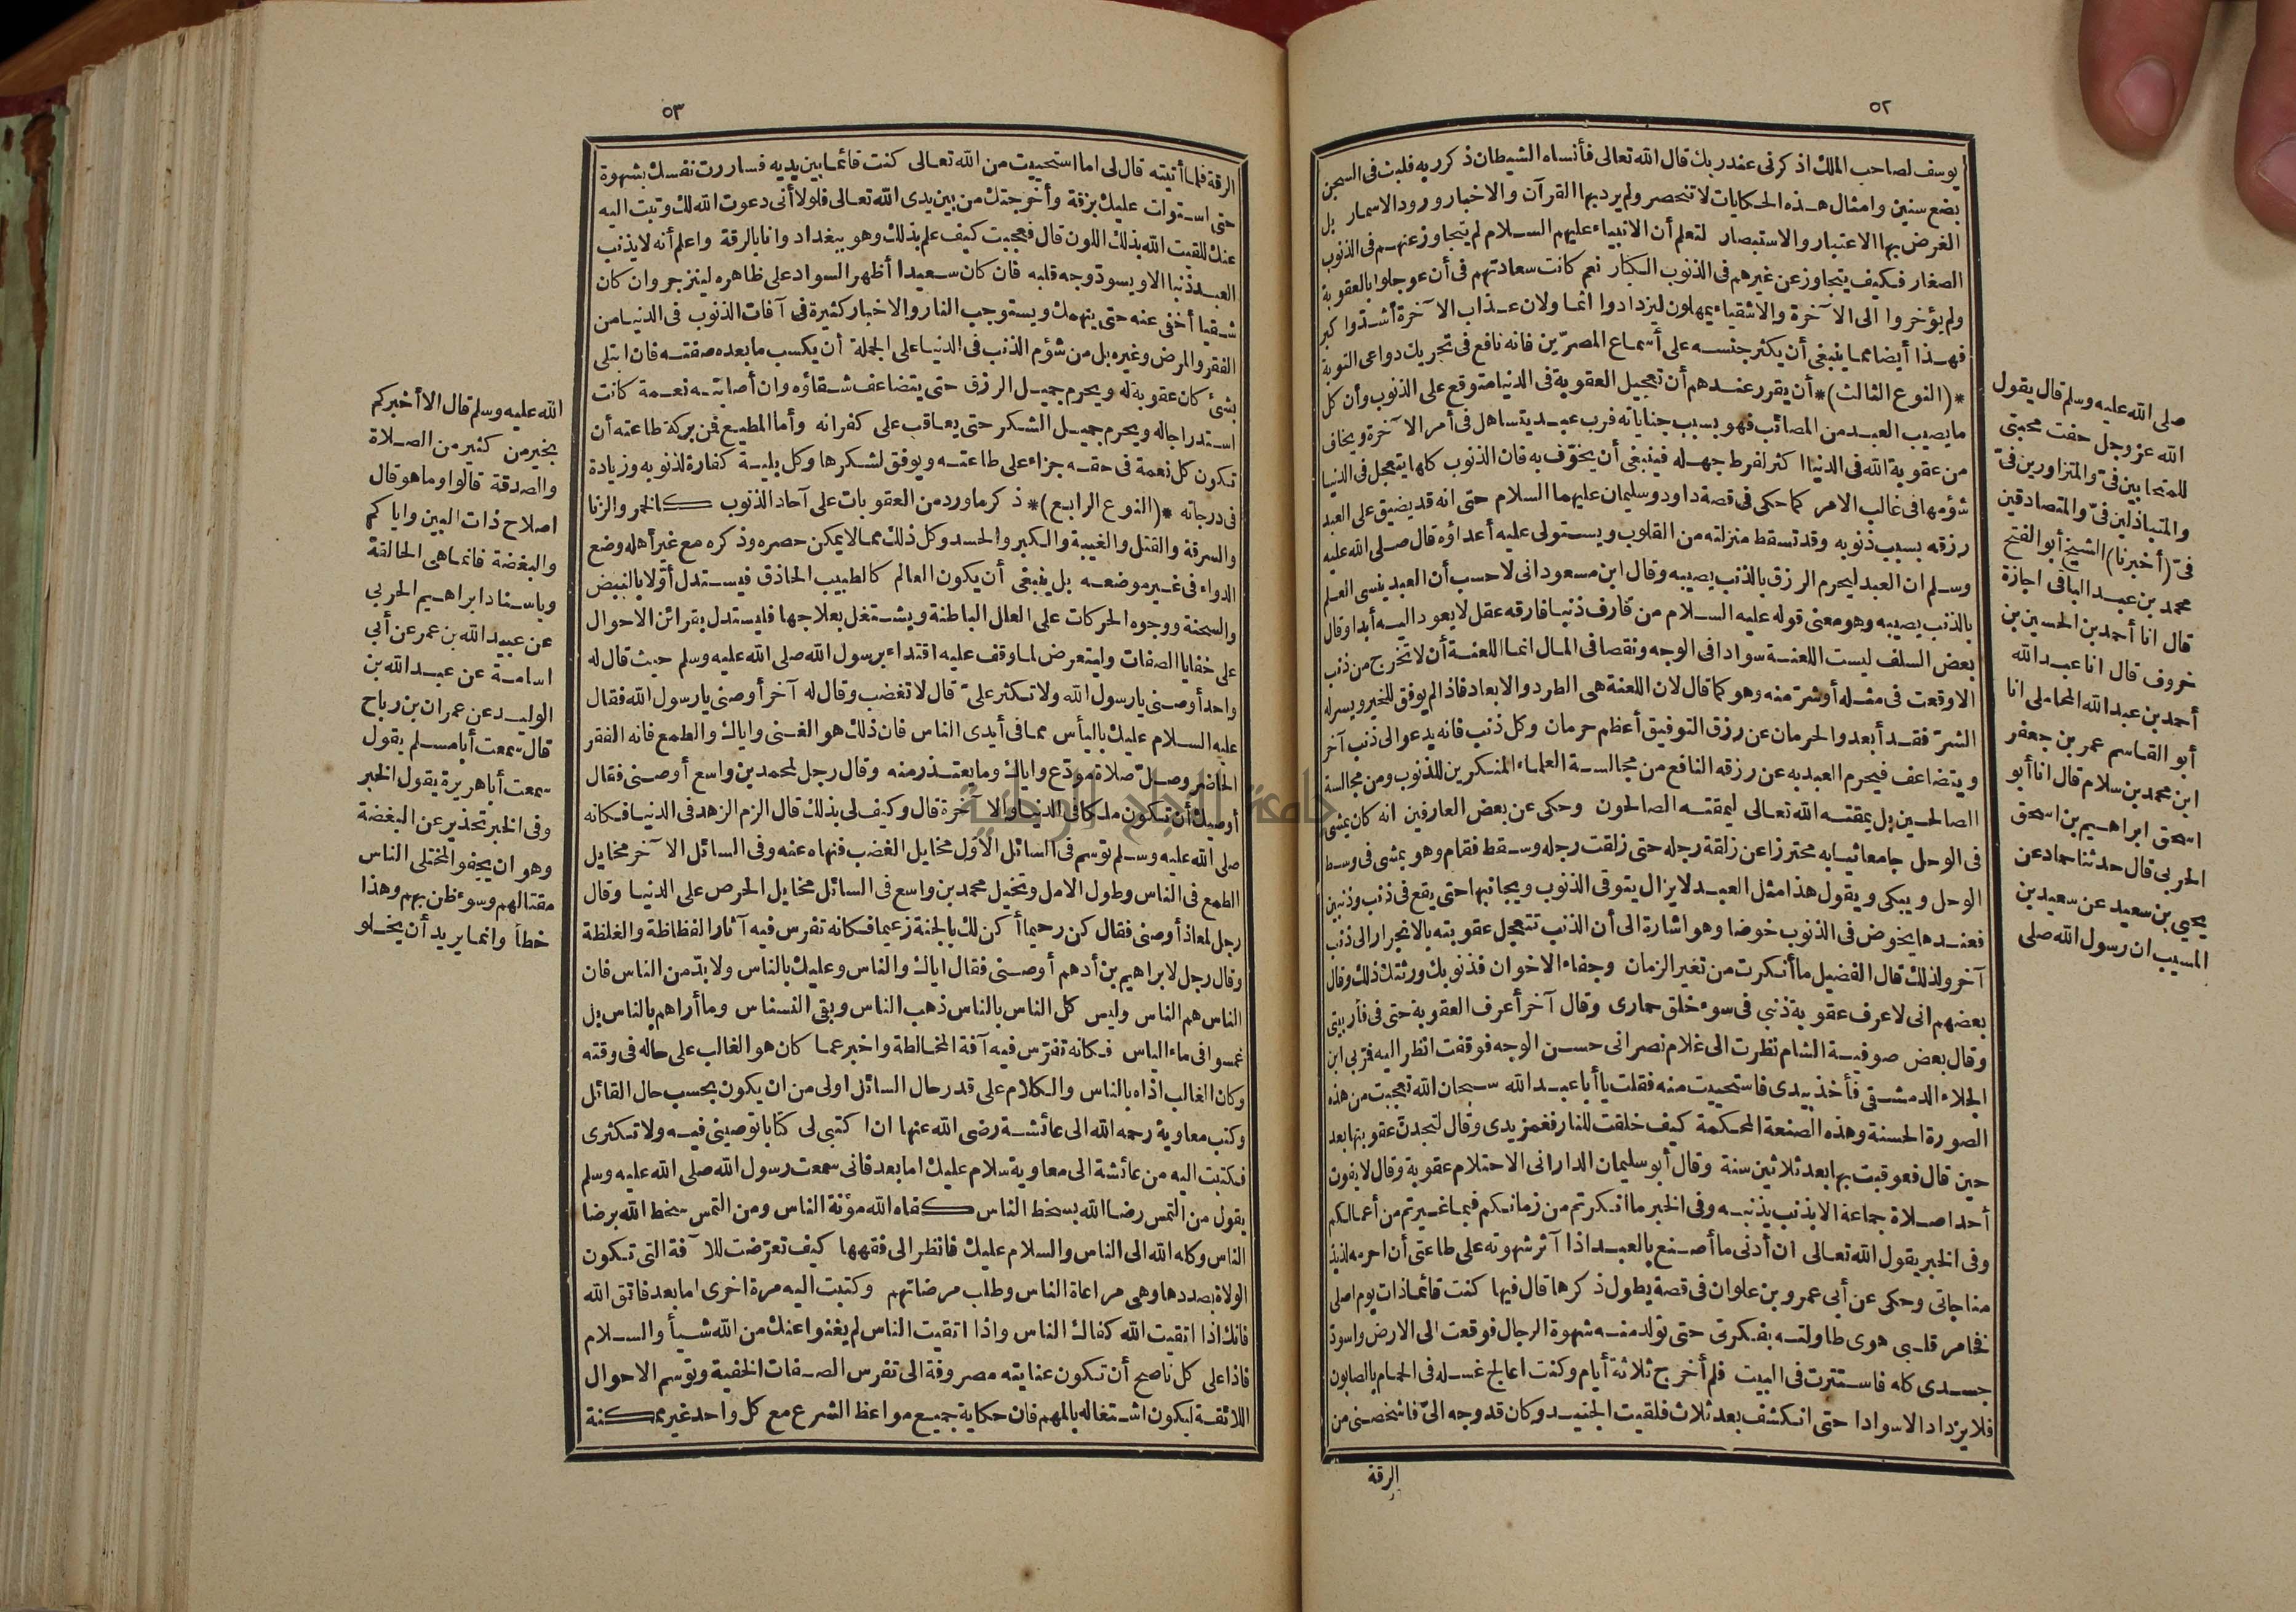 ٥٢
يوسف لصاحب الملك اذكرنى عند ربك قال الله تعالى فأنساه الشيطان ذكر ربه فلبث فى السجن
بضع سنين وامثال هذه الحكايات لا تنحصر ولم يرد بها القرآن والاخبار ورود الاسمار بل
الغرض بها الاعتبار والاستبصار لتعلم أن الانبياء عليهم السلام لم يتجاوز عنهم فى الذنوب
الصغار فكيف يتجاوز عن غيرهم فى الذنوب الكبار نعم كانت سعادتهم فى أن عوجلوا بالعقوبة
ولم يؤخروا الى الآخرة والاشقياء يمهلون ليزدادوا اثما ولان عذاب الآخرة أشد وا كبر
فهذا أيضا مما ينبغى أن يكثر جنسه على أسماع المصرّين فانه نافع فى تحريك دواعى التوبة
*(النوع الثالث)* أن يقرر عندهم أن تعجيل العقوبة فى الدنيا متوقع على الذنوب وأن كل
ما يصيب العبد من المصائب فهو بسبب جناياته فرب عبد يتساهل فى أمر الآخرة ويخاف
من عقوبة الله فى الدنيا اكثر لفرط جهله فينبغى أن يخوّف به فان الذنوب كلها يتعجل فى الدنيا
شؤمها فى غالب الامر كما حكى فى قصة داود وسليمان عليهما السلام حتى انه قد يضيق على العبد
رزقه بسبب ذنوبه وقد تسقط منزلته من القلوب ويستولى عليه أعداؤه قال صلى الله عليه
وسلم ان العبد ليحرم الرزق بالذنب يصيبه وقال ابن مسعود انى لاحسب أن العبد ينسى العلم
بالذنب يصيبه وهو معنى قوله عليه السلام من قارف ذنبا فارقه عقل لا يعود اليه أبدا وقال
بعض السلف ليست اللعنة سوادا فى الوجه ونقصا فى المال انما اللعنة أن لا تخرج من ذنب
الا وقعت فى مثله أو شرّ منه وهو كما قال لان اللعنة هى الطرد والابعاد فاذا لم يوفق للخير ويسر له
الشرّ فقد أبعد والحرمان عن رزق التوفيق أعظم حرمان وكل ذنب فانه يدعو الى ذنب آخر
ويتضاعف فيحرم العبد به عن رزقه النافع من مجالسة العلماء المنكرين للذنوب ومن مجالسة
الصالحين بل يمقته الله تعالى ليمقته الصالحون وحكى عن بعض العارفين انه كان يمشى
فى الوحل جامعا ثيابه محترزا عن زلقة رجله حتى زلقت رجله وسقط فقام وهو يمشى فى وسط
الوحل ويبكى ويقول هذا مثل العبد لا يزال يتوقى الذنوب ويجانبها حتى يقع فى ذنب وذنبين
فعندها يخوض فى الذنوب خوضا وهو اشارة الى أن الذنب تتعجل عقوبته بالانجرار الى ذنب
آخر ولذلك قال الفضيل ما أنكرت من تغير الزمان وجفاء الاخوان فذنوبك ورثتك ذلك وقال
بعضهم انى لاعرف عقوبة ذنبى فى سوء خلق حمارى وقال آخر أعرف العقوبة حتى فى فأر بيتى
وقال بعض صوفية الشام نظرت الى غلام نصرانى حسن الوجه فوقفت انظر اليه فمرّ بى ابن
الجلاء الدمشقى فأخذ بيدى فاستحييت منه فقلت يا أبا عبد الله سبحان الله تعجبت من هذه
الصورة الحسنة وهذه الصنعة المحكمة كيف خلقت للنار فغمز يدى وقال لتجدن عقوبتها بعد
حين قال فعوقبت بها بعد ثلاثين سنة وقال أبو سليمان الدارانى الاحتلام عقوبة وقال لا يفوت
أحدا صلاة جماعة الا بذنب يذنبه وفى الخبر ما انكرتم من زمانكم فبما غيرتم من أعمالكم
وفى الخبر يقول الله تعالى ان أدنى ما أصنع بالعبد اذا آثر شهوته على طاعتى أن احرمه لذيذ
مناجاتى وحكى عن أبى عمرو بن علوان فى قصة يطول ذكرها قال فيها كنت قائما ذات يوم اصلى
فخامر قلبى هوى طاولته بفكرتى حتى تولد منه شهوة الرجال فوقعت الى الارض واسودّ
جسدى كله فاستترت فى البيت فلم أخرج ثلاثة أيام وكنت اعالج غسله فى الحمام بالصابون
فلا يزداد الا سوادا حتى انكشف بعد ثلاث فلقيت الجنيد وكان قد وجه الىّ فاشخصنى من
الرقة
صلى الله عليه وسلم قال يقول
الله عز وجل حقت محبتى
للمتحابين فىّ والمتزاورين فىّ
والمتباذلين فىّ والمتصادقين
فىّ (أخبرنا) الشيخ أبو الفتح
محمد بن عبد الباقى اجازة
قال انا أحمد بن الحسين بن
خروف قال انا عبد الله
أحمد بن عبد الله المحاملى انا
أبو القاسم عمر بن جعفر
ابن محمد بن سلام قال انا أبو
اسحق ابراهيم بن اسحق
الحربى قال حدثنا حماد عن
يحيى بن سعيد عن سعيد بن
المسيب ان رسول الله صلى
٥٣
الرقة فلما أتيته قال لى اما استحييت من الله تعالى كنت قائما بين يديه فساررت نفسك بشهوة
حتى استولت عليك برقة وأخرجتك من بين يدى الله تعالى فلولا أنى دعوت الله لك وتبت اليه
عنك للقيت الله بذلك اللون قال فعجبت كيف علم بذلك وهو ببغداد وانا بالرقة واعلم أنه لا يذنب
العبد ذنبا الا ويسودّ وجه قلبه فان كان سعيدا أظهر السواد على ظاهره لينزجر وان كان
شقيا أخفى عنه حتى ينهمك ويستوجب النار والاخبار كثيرة فى آفات الذنوب فى الدنيا من
الفقر والمرض وغيره بل من شؤم الذنب فى الدنيا على الجملة أن يكسب ما بعده صفته فان ابتلى
بشئ كان عقوبة له ويحرم جميل الرزق حتى يتضاعف شقاؤه وان أصابته نعمة كانت
استدراجا له ويحرم جميل الشكر حتى يعاقب على كفرانه وأما المطيع فمن بركة طاعته أن
تكون كل نعمة فى حقه جزاء على طاعته ويوفق لشكرها وكل بلية كفارة لذنوبه وزيادة
فى درجاته *(النوع الرابع)* ذكر ما ورد من العقوبات على آحاد الذنوب كالخمر والزنا
والسرقة والقتل والغيبة والكبر والحسد وكل ذلك مما لا يمكن حصره وذكره مع غير أهله وضع
الدواء فى غير موضعه بل ينبغى أن يكون العالم كالطبيب الحاذق فيستدل أوّلا بالنبض
والسحنة ووجوه الحركات على العلل الباطنة ويشتغل بعلاجها فليستدل بقرائن الاحوال
على خفايا الصفات وليتعرض لما وقف عليه اقتداء برسول الله صلى الله عليه وسلم حيث قال له
واحد أوصنى يا رسول الله ولا تكثر علىّ قال لا تغضب وقال له آخر أوصنى يا رسول الله فقال
عليه السلام عليك باليأس مما فى أيدى الناس فان ذلك هو الغنى واياك والطمع فانه الفقر
الحاضر وصلّ صلاة مودّع واياك وما يعتذر منه وقال رجل لمحمد بن واسع أوصنى فقال
أوصيك أن تكون ملكا فى الدنيا والآخرة قال وكيف لى بذلك قال الزم الزهد فى الدنيا فكانه
صلى الله عليه وسلم توسم فى السائل الاوّل مخايل الغضب فنهاه عنه وفى السائل الآخر مخايل
الطمع فى الناس وطول الامل وتخيل محمد بن واسع فى السائل مخايل الحرص على الدنيا وقال
رجل لمعاذ أوصنى فقال كن رحيما أكن لك بالجنة زعيما فكانه تفرس فيه آثار الفظاظة والغلظة
وقال رجل لابراهيم بن أدهم أوصنى فقال اياك والناس وعليك بالناس ولا بدّ من الناس فان
الناس هم الناس وليس كل الناس بالناس ذهب الناس وبقى النسناس وما أراهم بالناس بل
غمسوا فى ماء الياس فكانه تفرّس فيه آفة المخالطة واخبر عما كان هو الغالب على حاله فى وقته
وكان الغالب اذاه بالناس والكلام على قدر حال السائل اولى من ان يكون بحسب حال القائل
وكتب معاوية رحمه الله الى عائشة رضى الله عنها ان اكتبى لى كتابا توصينى فيه ولا تكثرى
فكتبت اليه من عائشة الى معاوية سلام عليك اما بعد فانى سمعت رسول الله صلى الله عليه وسلم
يقول من التمس رضا الله بسخط الناس كفاه الله مؤنة الناس ومن التمس سخط الله برضا
الناس وكله الله الى الناس والسلام عليك فانظر الى فقهها كيف تعرّضت للآفة التى تكون
الولاة بصددها وهى مراعاة الناس وطلب مرضاتهم وكتبت اليه مرة اخرى اما بعد فاتق الله
فانك اذا اتقيت الله كفاك الناس واذا اتقيت الناس لم يغنوا عنك من الله شيأ والسلام
فاذا على كل ناصح أن تكون عنايته مصروفة الى تفرس الصفات الخفية وتوسم الاحوال
اللائقة ليكون اشتغاله بالمهم فان حكاية جميع مواعظ الشرع مع كل واحد غير ممكنة
الله عليه وسلم قال الا أخبركم
بخير من كثير من الصلاة
والصدقة قالوا وما هو قال
اصلاح ذات البين واياكم
والبغضة فانما هى الحالقة
وباسناد ابراهيم الحربى
عن عبيد الله بن عمر عن أبى
اسامة عن عبد الله بن
الوليد عن عمران بن رباح
قال سمعت أبا مسلم يقول
سمعت أبا هريرة يقول الخبر
وفى الخبر تحذير عن البغضة
وهو ان يجفو المختلى الناس
مقتا لهم وسوء ظن بهم وهذا
خطأ وانما يريد أن يخلو
جامعة النجاح الوطنية